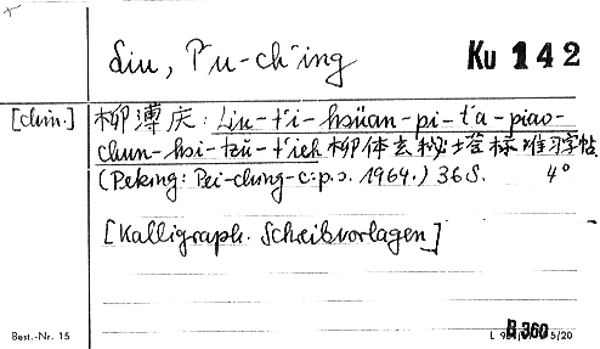 Liu, P'u-ch'ing
Ku 142
[chin.] 柳溥庆: Liu-t'i-hsüan-pi-t'a-piao-
chun-hsi-tzŭ-t'ieh 柳体玄秘塔标准习字帖
(Peking: Pei-ching-c:p.s. 1964.) 36 S. 4°
[Kalligraph. Schreibvorlagen]
Best.-Nr. 15
B 360
5/20